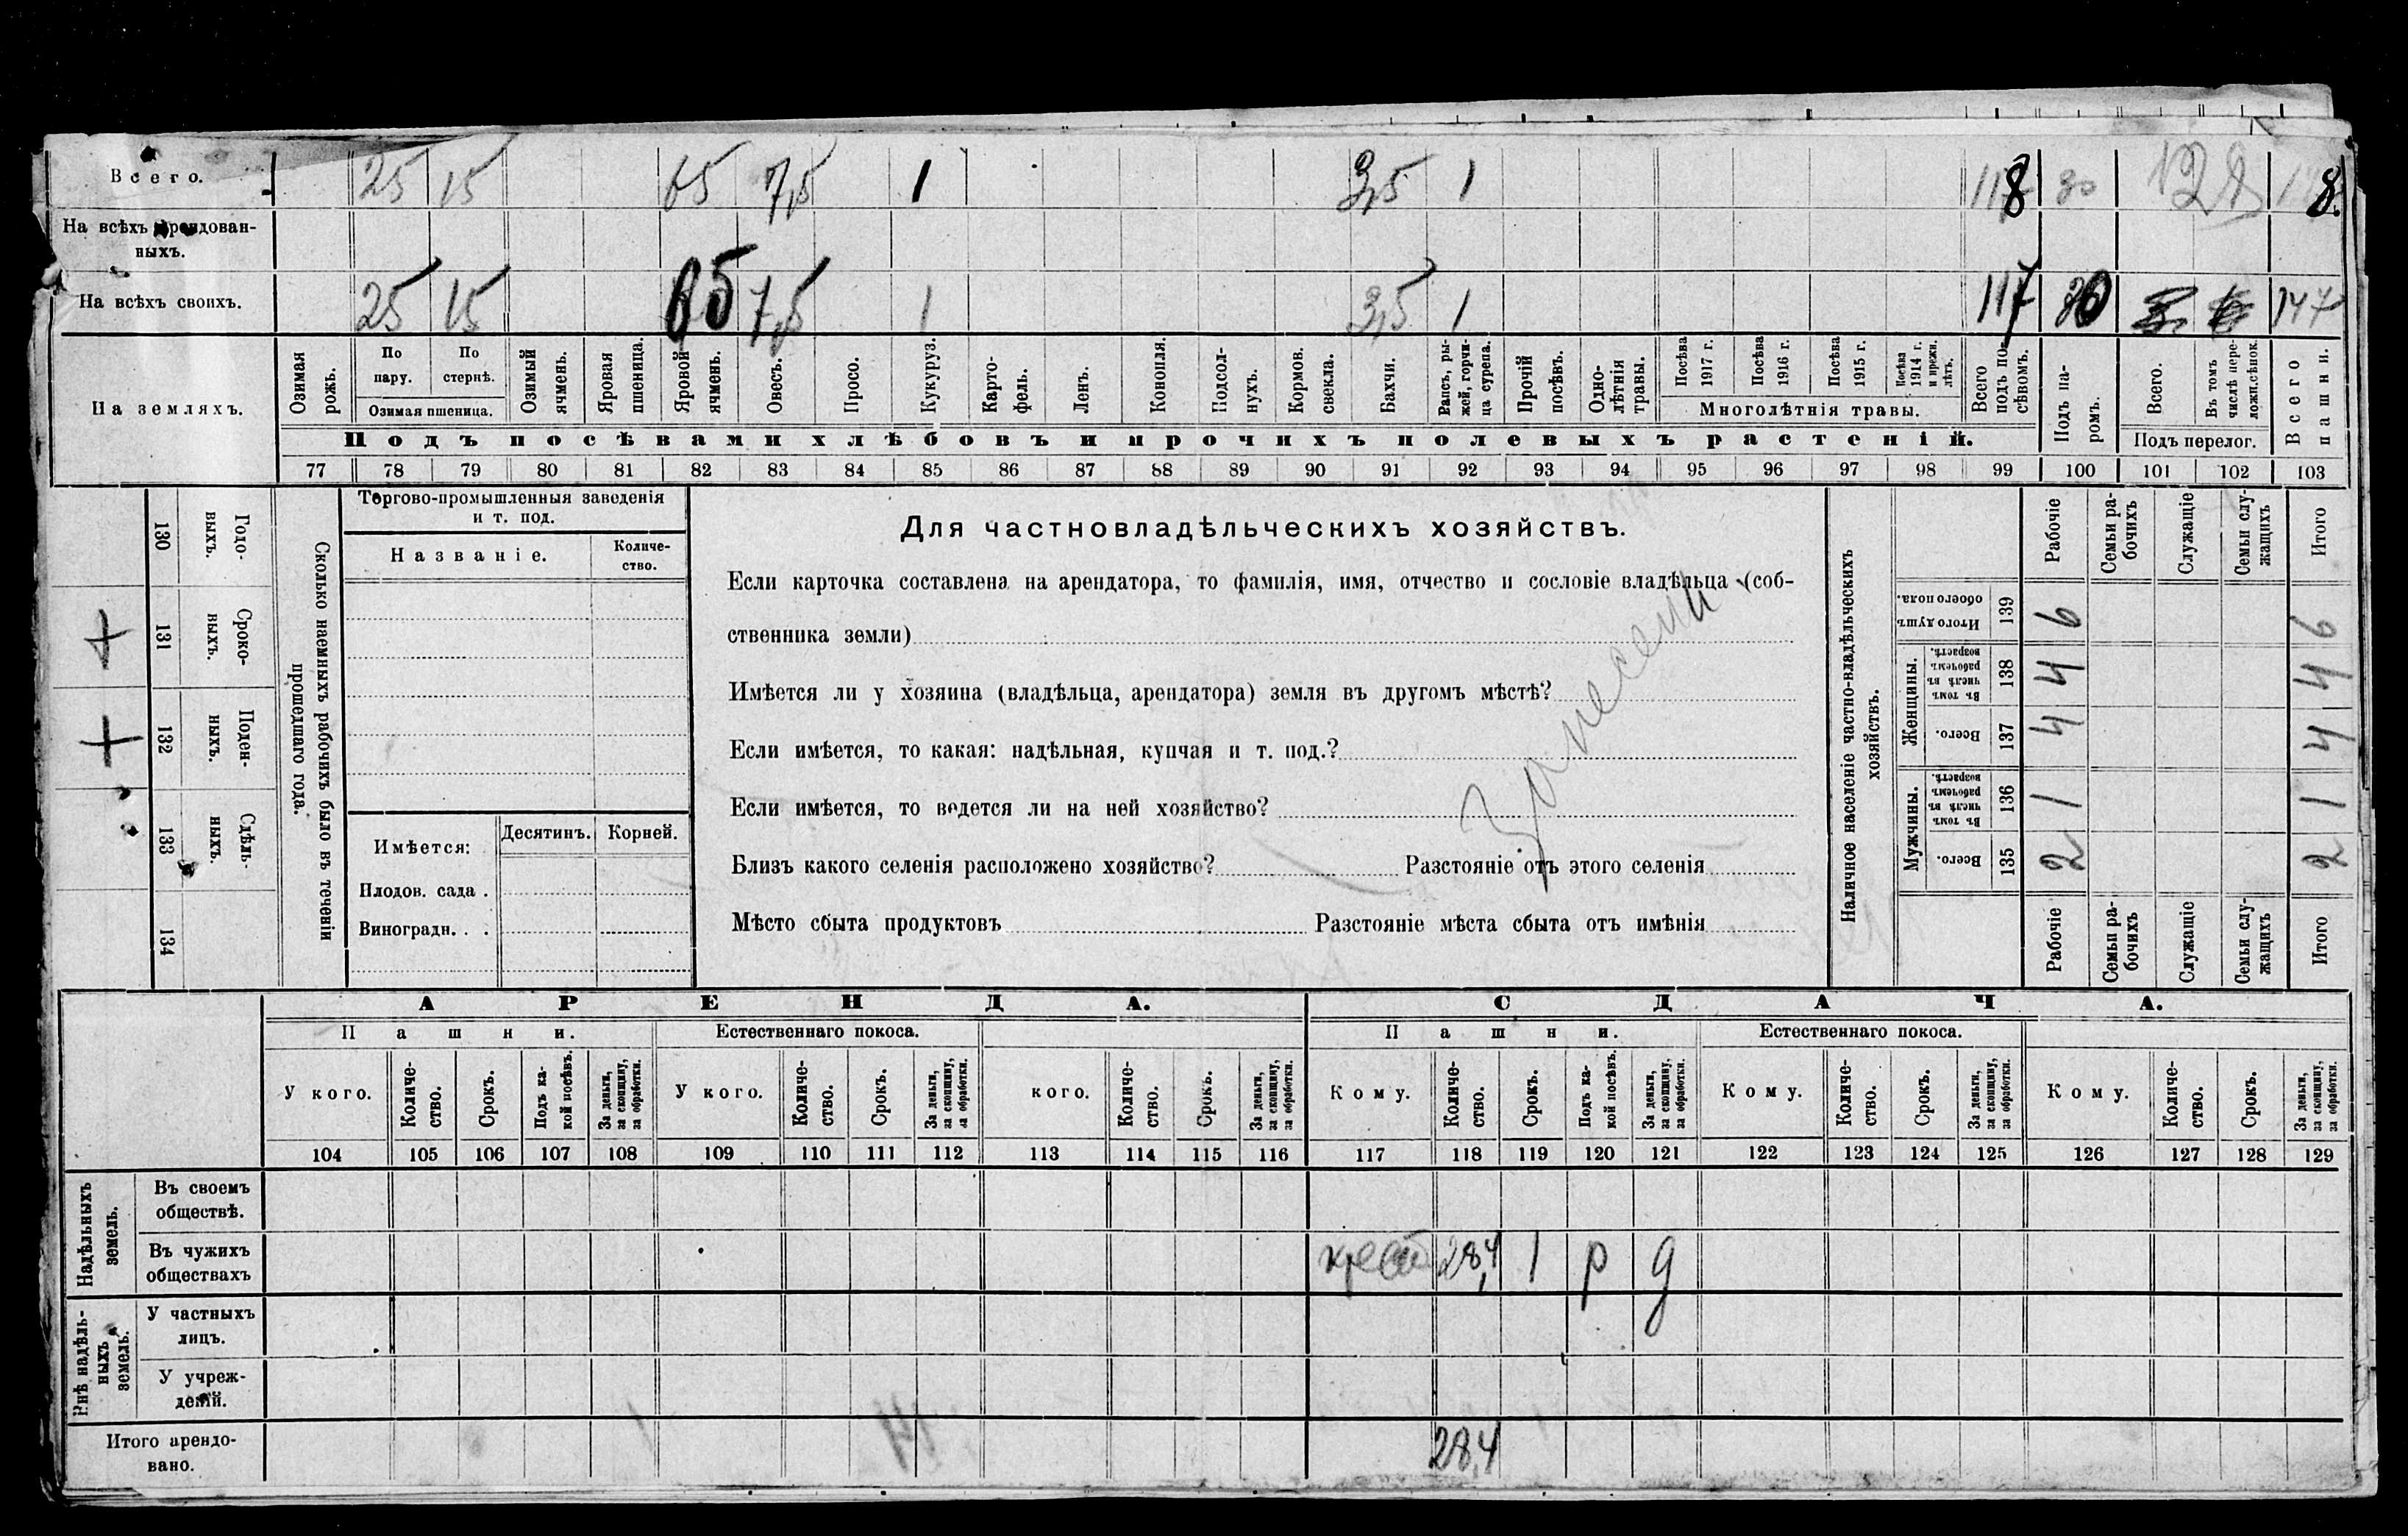 Всего. 25 15 65 7,5 1 3,5 1 118 30 128 8.
На всѣхъ арендован-
ныхъ.
На всѣхъ своихъ. 25 15 65 7,5 1 3,5 1 117 30 147
На земляхъ.
Озимая рожь.
По пару.
По стернѣ.
Озимая пшеница.
Озимый ячмень.
Яровая пшеница.
Яровой ячмень.
Овесъ.
Просо.
Кукуруз.
Карто-
фель.
Ленъ.
Конопля.
Подсол-
нухъ.
Кормов. свекла.
Бахчи.
Рапсъ, ры-
жей, горчи-
ца сурепа.
Прочій посѣвъ.
Одно-
лѣтнія травы.
Посѣва 1917 г.
Посѣва 1916 г.
Посѣва 1915 г.
Посѣва 1914 г. и прежн. лѣтъ.
Многолѣтнія травы.
Всего подъ по-
сѣвомъ.
Подъ па-
ромъ.
Всего.
Въ томъ числѣ пере-
ложн.сѣнок.
Подъ перелог.
Всего пашни.
Подъ посѣвами хлѣбовъ и прочихъ полевыхъ растеній.
77 78 79 80 81 82 83 84 85 86 87 88 89 90 91 92 93 94 95 96 97 98 99 100 101 102 103
130 Годо-
выхъ.
131 Сроко-
ныхъ.
132 Поден-
ныхъ.
133 Сдѣль-
ныхъ.
134
Сколько наемныхъ рабочихъ было въ теченіи
прошедшаго года.
Торгово-промышленныя заведенія
и т. под.
Названіе.
Количе-
ство.
Имѣется:
Десятинъ.
Корней.
Плодов. сада .
Виноградн. . .
Для частновладѣльческихъ хозяйствъ.
Если карточка составлена на арендатора, то фамилія, имя, отчество и сословіе владѣльца (соб-
ственника земли)
Имѣется ли у хозяина (владѣльца, арендатора) земля въ другомъ мѣстѣ?
Если имѣется, то какая: надѣльная, купчая и т. под.?
Если имѣется, то ведется ли на ней хозяйство?
Близъ какого селенія расположено хозяйство? Разстояніе отъ этого селенія
Мѣсто сбыта продуктовъ Разстояніе мѣста сбыта отъ имѣнія
Занесены
Наличное населеніе частно-владѣльческихъ
хозяйствъ.
Рабочіе
Семьи ра-
бочихъ
Служащіе
Семьи слу-
жащихъ
Итого
Итого душъ обоего пола. 139 6 6
Женщины.
Въ томъ числѣ въ рабочемъ возрастѣ. 138 4 4
Всего. 137 4 4
Мужчины.
Въ томъ числѣ въ рабочемъ возрастѣ. 136 1 1
Всего. 135 2 2
Рабочіе
Семьи ра-
бочихъ
Служащіе
Семьи слу-
жащихъ
Итого
АРЕНДА.
СДАЧА.
Пашни.
Естественнаго покоса.
Пашни.
Естественнаго покоса.
У кого.
Количе-
ство.
Срокъ.
Подъ ка-
кой посѣвъ.
За деньги, за скопщину, за обработки.
У кого.
Количе-
ство.
Срокъ.
За деньги, за скопщину, за обработки.
кого.
Количе-
ство.
Срокъ.
За деньги, за скопщину, за обработки.
Кому.
Количе-
ство.
Срокъ.
Подъ ка-
кой посѣвъ.
За деньги, за скопщину, за обработки.
Кому.
Количе-
ство.
Срокъ.
За деньги, за скопщину, за обработки.
Кому.
Количе-
ство.
Срокъ.
За деньги, за скопщину, за обработки.
104 105 106 107 108 109 110 111 112 113 114 115 116 117 118 119 120 121 122 123 124 125 126 127 128 129
Надѣльныхъ
земель.
Въ своемъ
обществѣ.
Въ чужихъ
обществахъ
крест 28,4 1 р д
Внѣ надѣль-
ныхъ
земель.
У частныхъ
лицъ.
У учреж-
деній.
Итого арендо-
вано.
28,4